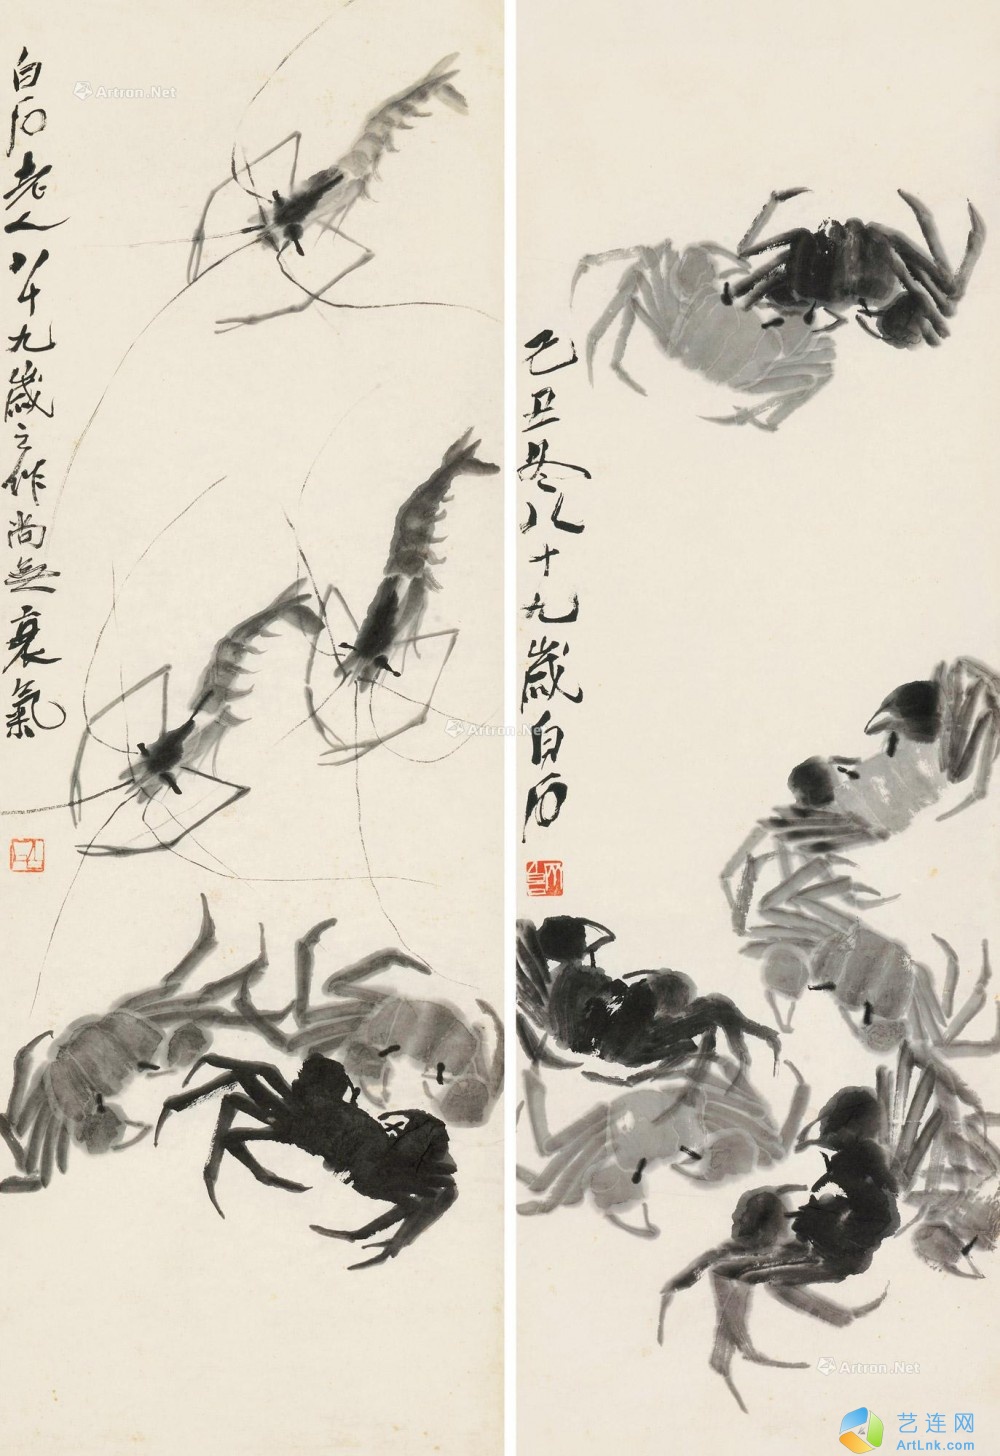 白石老人八十九歲之作尚無衰氣
己丑冬八十九歲白石
Artron.Net
Artron.Net
Artron.Net
艺连网
ArtLnk.com